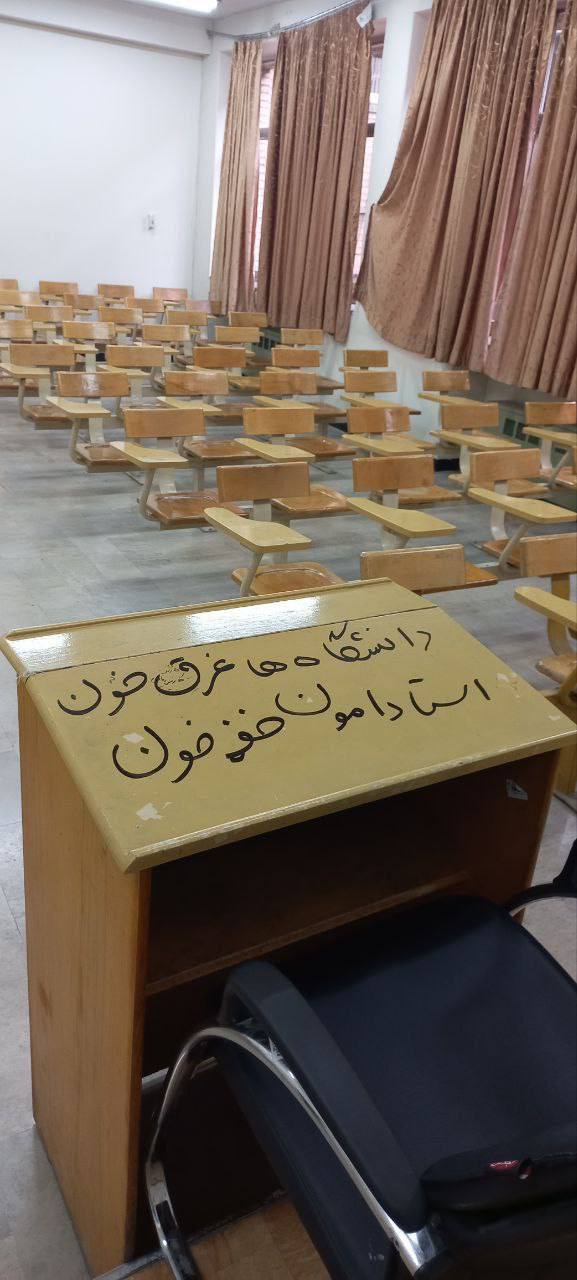 دانشگاه ها غرق خون
استادامون خفه خون